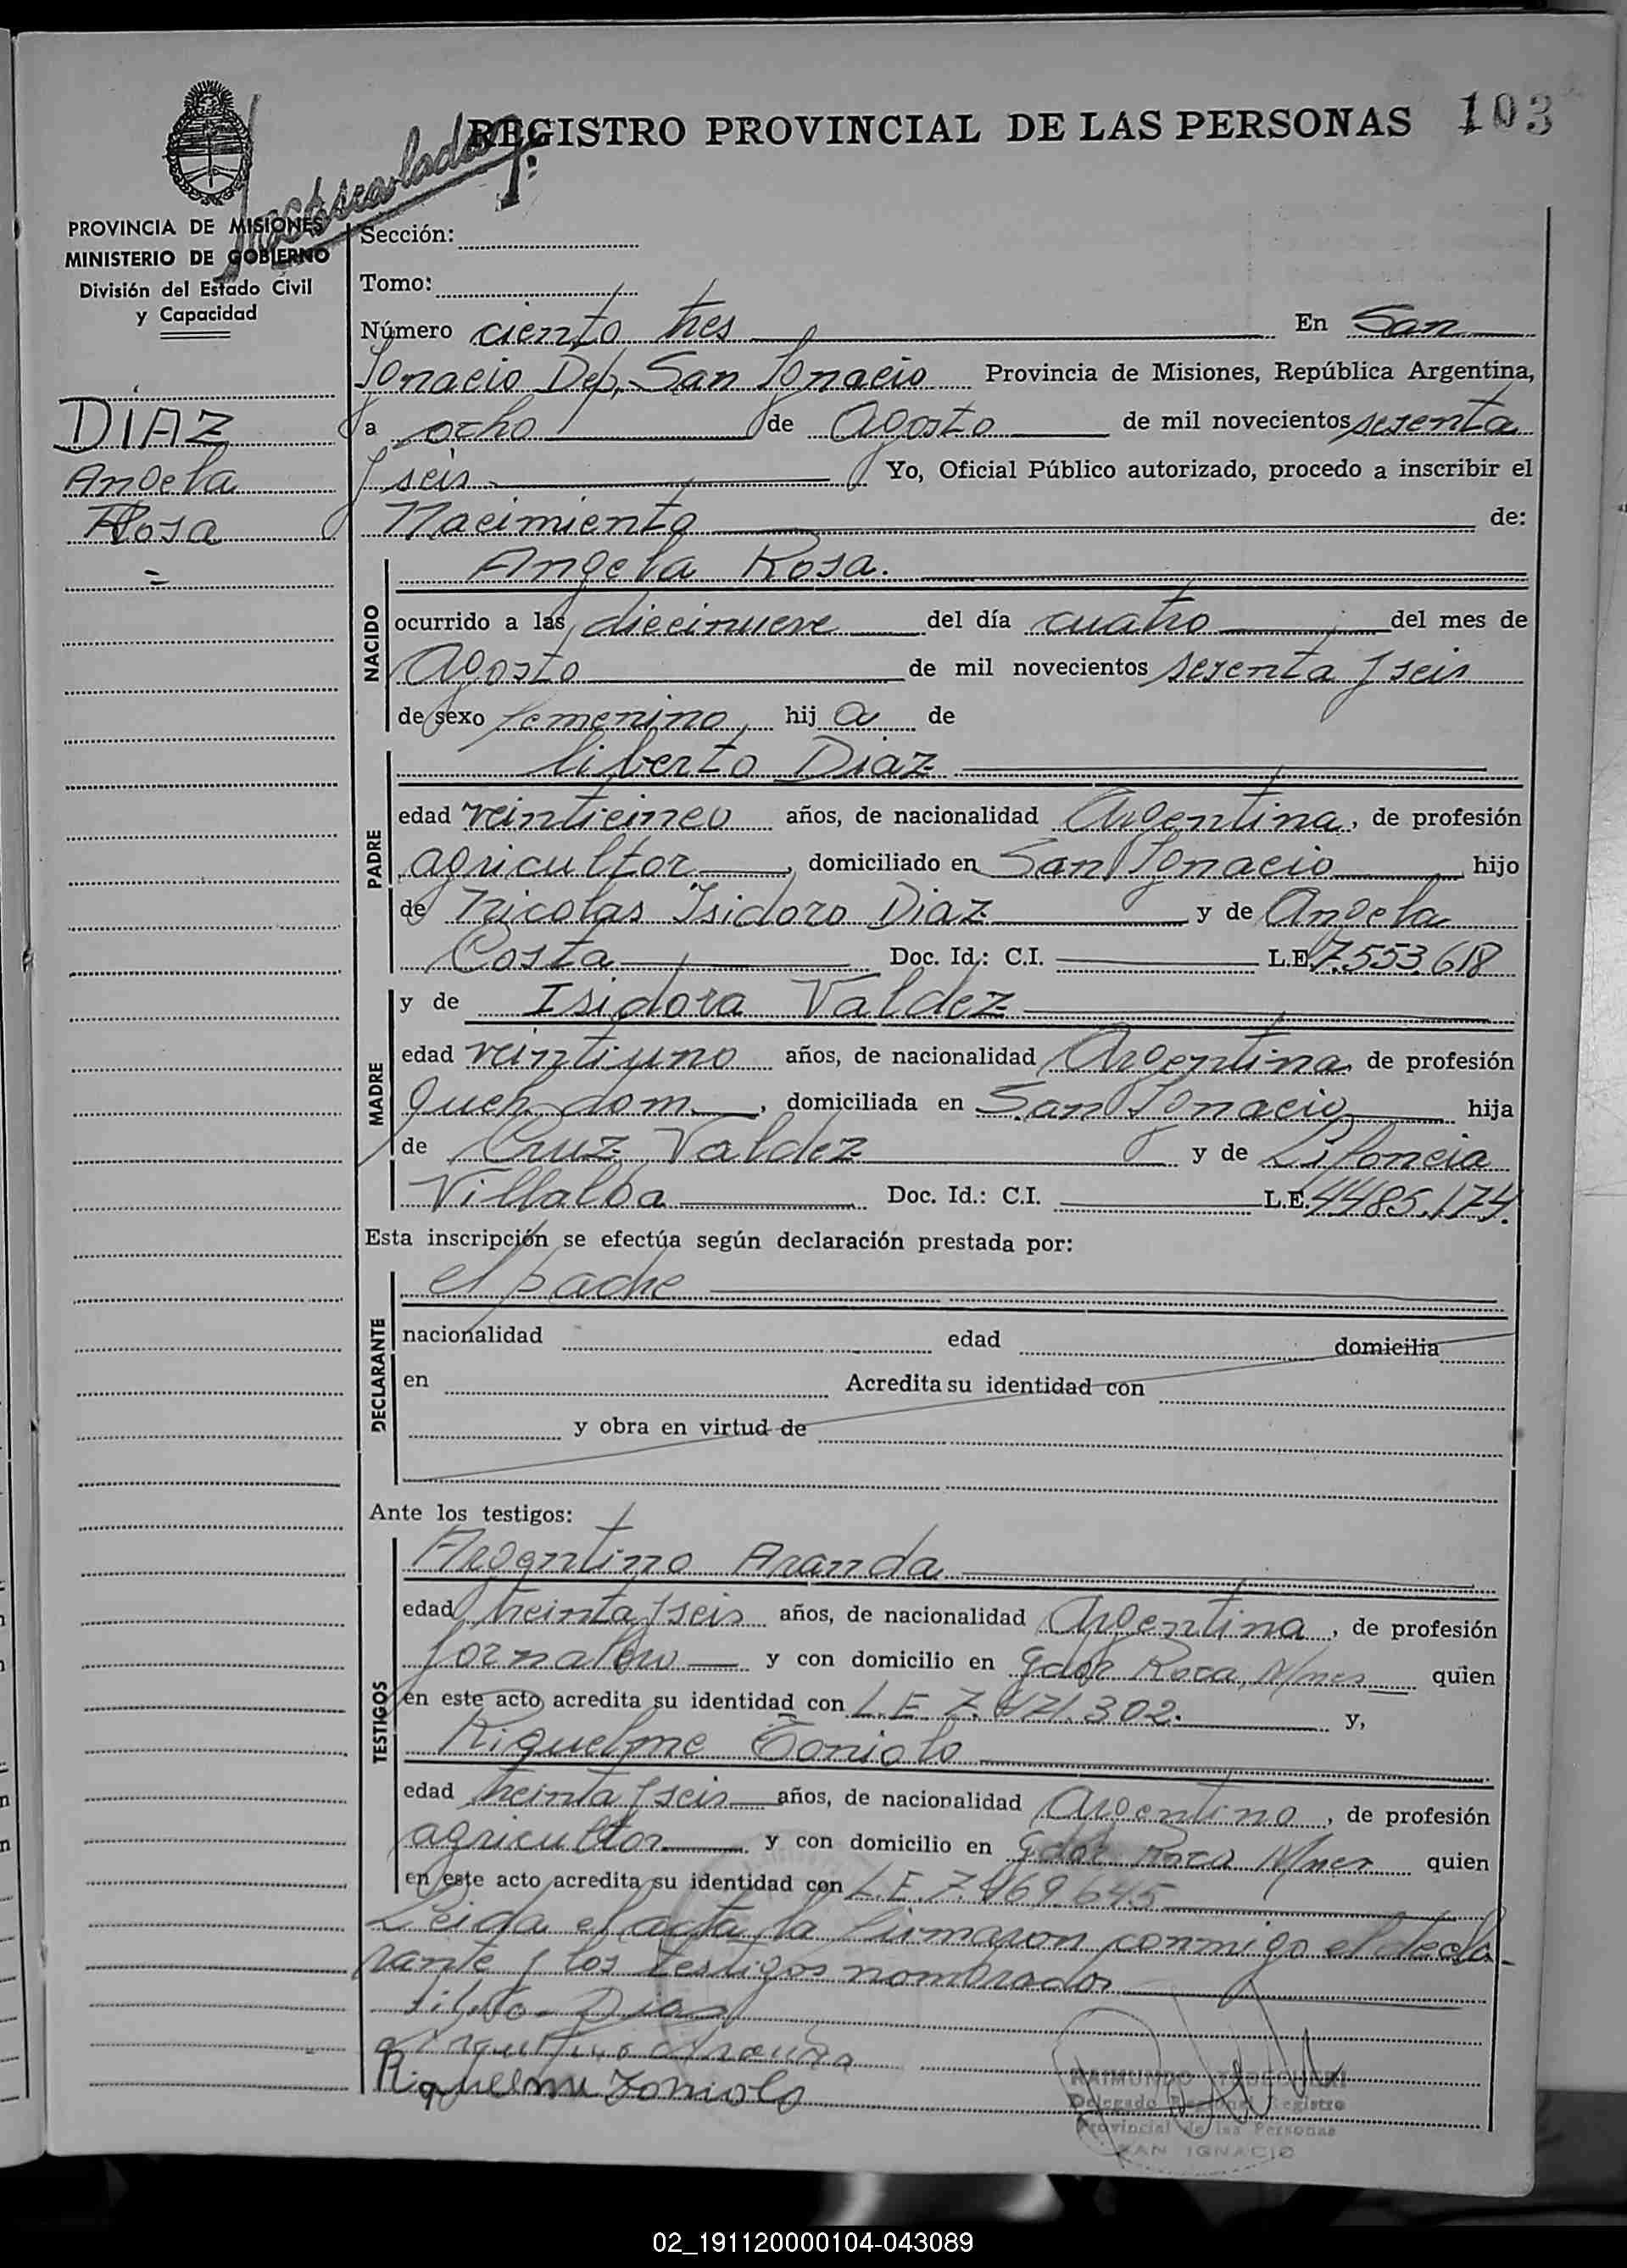 REGISTRO PROVINCIAL DE LAS PERSONAS 103
PROVINCIA DE MISIONES
MINISTERIO DE GOBIERNO
División del Estado Civil
y Capacidad
DIAZ
Angela
Rosa
=
Sección:
Tomo:
Número ciento tres En San
Ignacio Dep. San Ignacio Provincia de Misiones, República Argentina,
a ocho de Agosto de mil novecientos sesenta
y seis Yo, Oficial Público autorizado, procedo a inscribir el
Nacimiento de:
NACIDO
Angela Rosa.
ocurrido a las diecinueve del día cuatro del mes de
Agosto de mil novecientos sesenta y seis
de sexo femenino, hij a de
PADRE
Liberto Diaz
edad veinticinco años, de nacionalidad Argentina, de profesión
agricultor, domiciliado en San Ignacio hijo
de Nicolas Isidoro Diaz y de Angela
Costa Doc. Id.: C.I. L.E. 7.553.618
MADRE
y de Isidora Valdez
edad veintiuno años, de nacionalidad Argentina, de profesión
Queh. dom., domiciliada en San Ignacio hija
de Cruz Valdez y de
Villalba Doc. Id.: C.I. L.E. 4485.174.
Esta inscripción se efectúa según declaración prestada por:
DECLARANTE
el padre
nacionalidad edad domicilia
en Acredita su identidad con
y obra en virtud de
Ante los testigos:
TESTIGOS
Argentino Aranda
edad treinta y seis años, de nacionalidad Argentina, de profesión
jornalero y con domicilio en Gdor Roca, Mnes quien
en este acto acredita su identidad con L.E. 7.471.302. y,
Riquelme Toniolo
edad treinta y seis años, de nacionalidad Argentino, de profesión
agricultor y con domicilio en Gdor Roca Mnes quien
en este acto acredita su identidad con L.E. 7.469.645
Leida el acta la firmaron conmigo el decla-
rante y los testigos nombrados
Diaz
Argentino Aranda
Riquelme Toniolo
RAIMUNDO
Delegado Registro
Provincial de las Personas
SAN IGNACIO
02_191120000104-043089